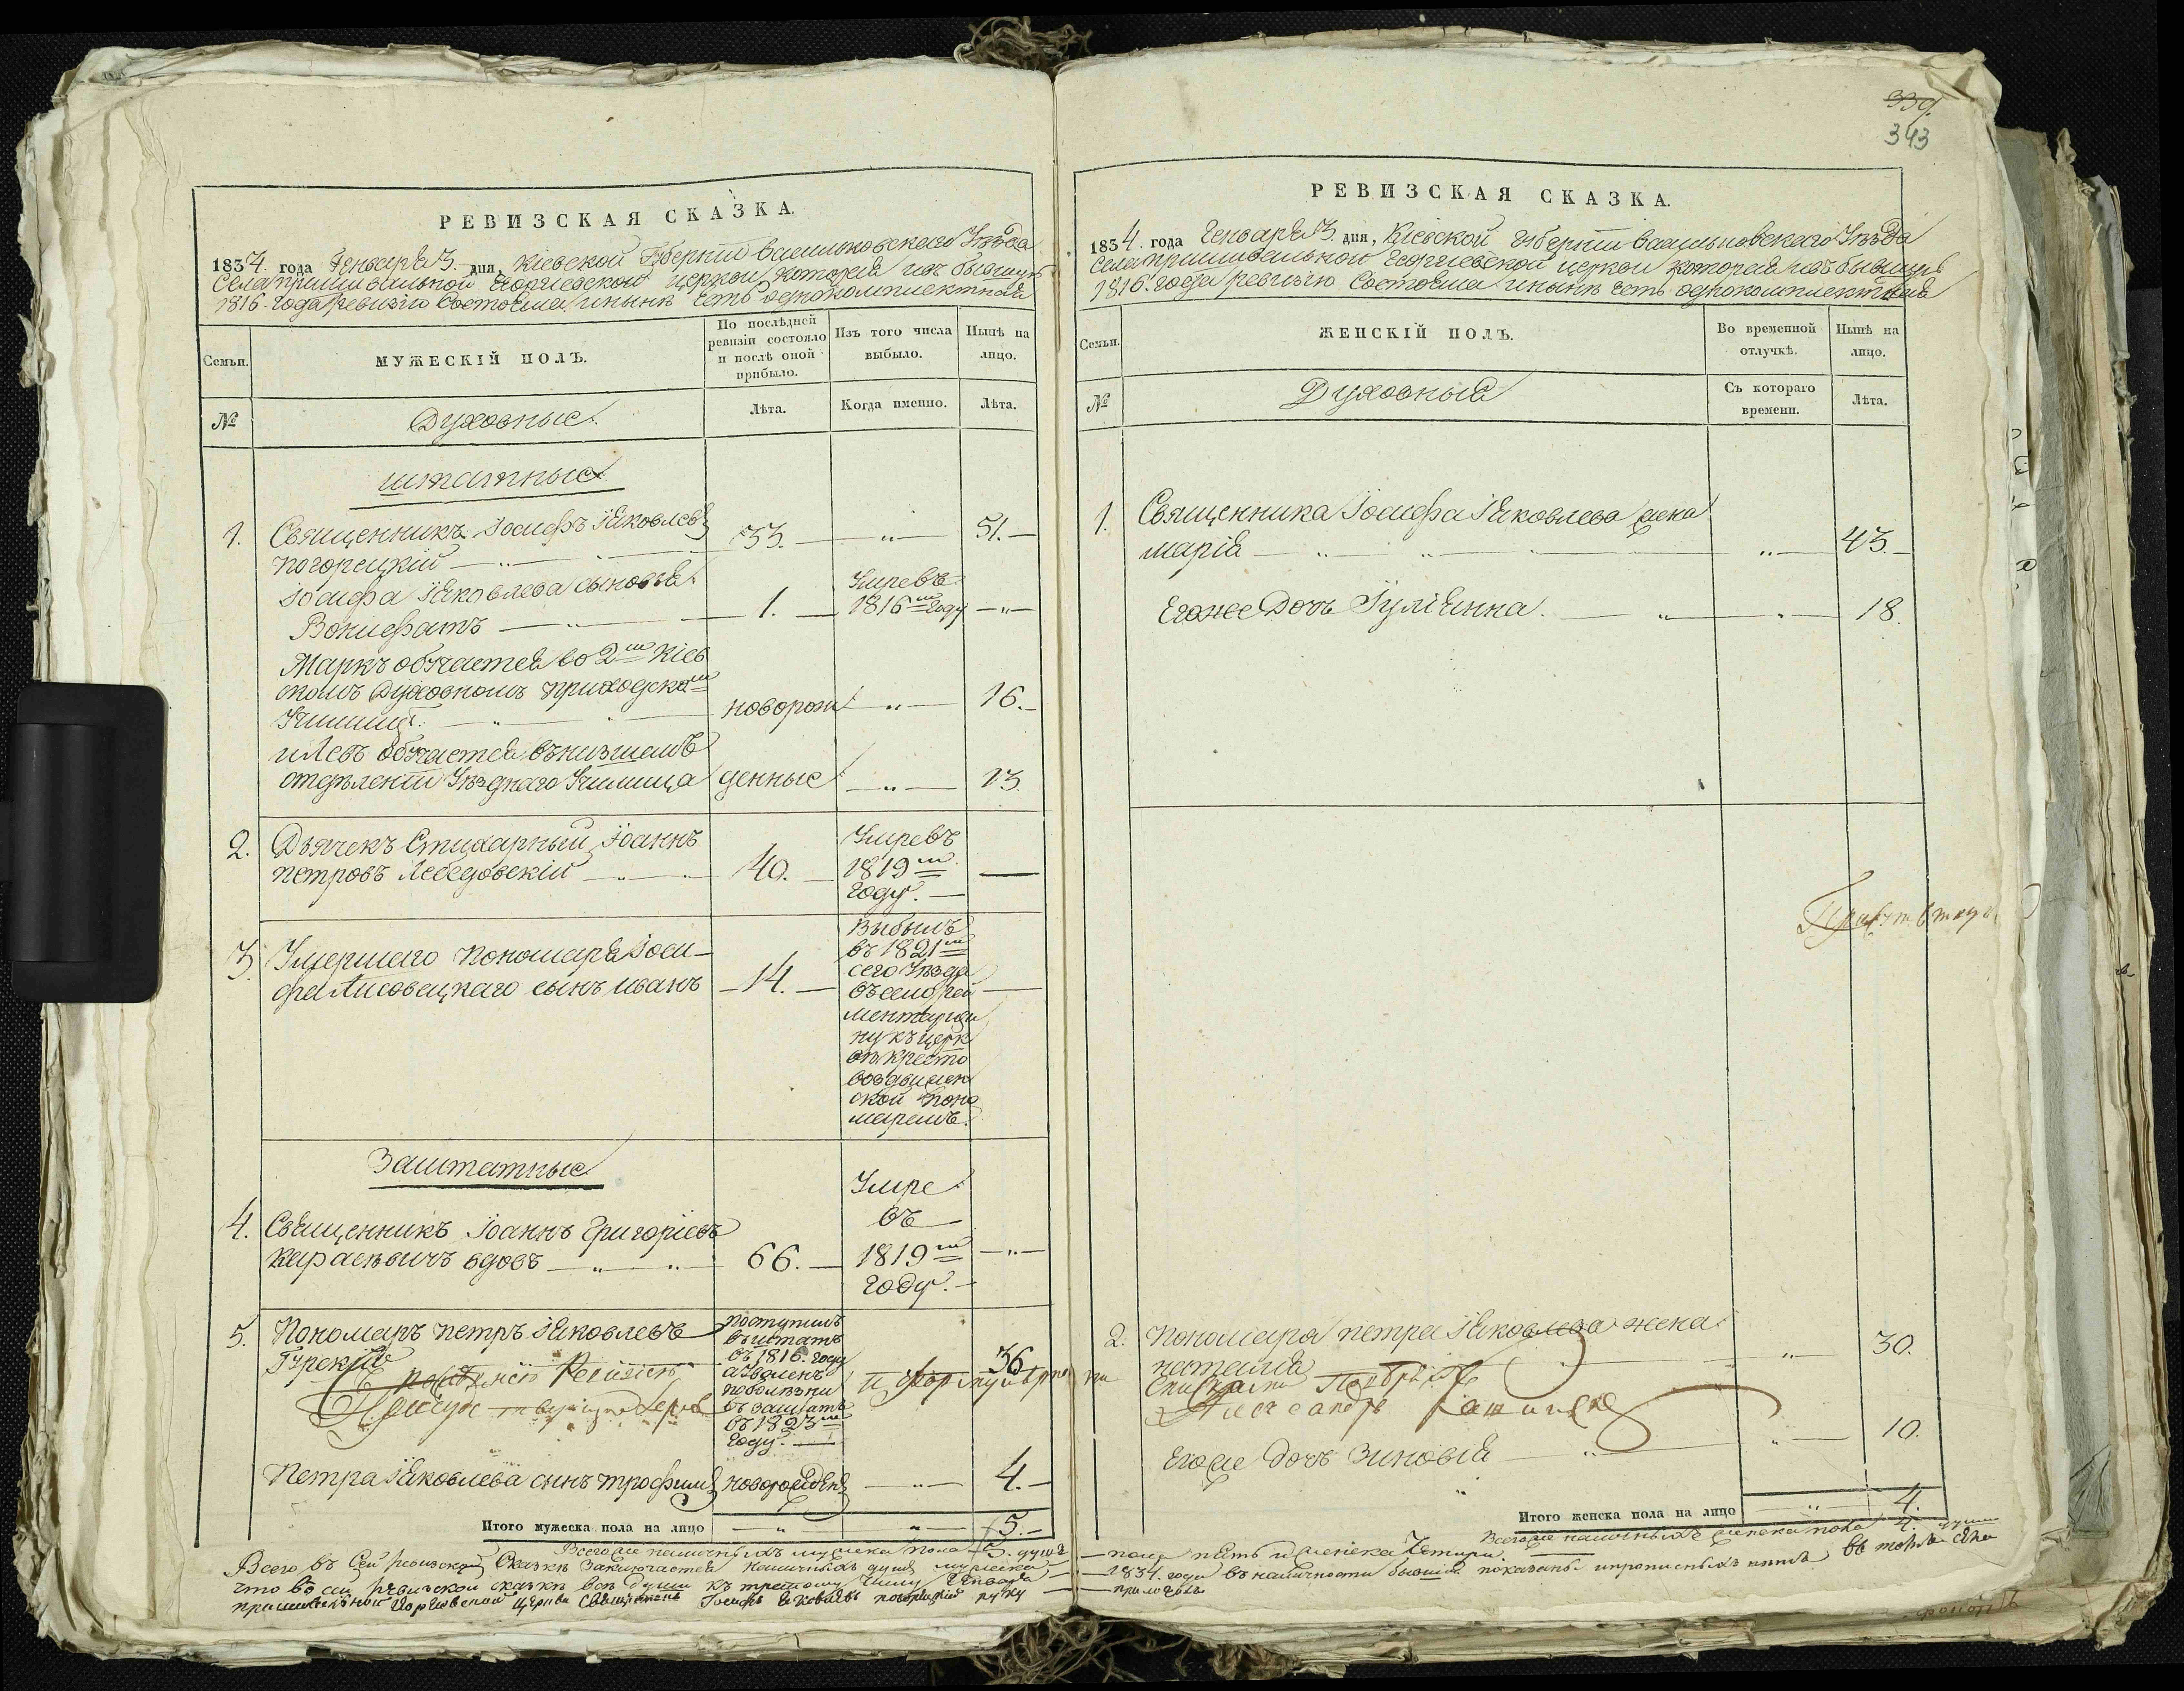 339.
343
РЕВИЗСКАЯ СКАЗКА.
1834. года Генваря 3. дня, Кіевской Губерніи Васильковскаго Уѣзда
Села Пришивальной Георгіевской церкви которая въ бывшую
1816. года ревизію Состояла и нынѣ есть однокомплектная
Семьи.
МУЖЕСКІЙ ПОЛЪ.
По послѣдней ревизіи состояло и послѣ оной прибыло.
Изъ того числа выбыло.
Нынѣ на лицо.
№
Духовные.
Лѣта.
Когда именно.
Лѣта.
штатные
1. Священникъ Іосифъ Яковлевъ
Погорецкій — 33. — „ — 51. —
Іосифа Яковлева сыновья
Вонифатъ — 1. — Умре въ 1816м году — „ —
Маркъ обучается во 2м Кіев
скомъ Духовномъ приходском
Училищѣ. новорож — „ — 16. —
и Левъ обучается въ низшемъ
отдѣленіи Уѣзднаго Училища денные — „ — 13.
2. Дьячекъ Стихарный Іоаннъ
Петровъ Лебедовскій — 40. — Умре въ 1819м году. —
3. Умершаго Пономаря Іоси-
фа Лисовецкаго сынъ Иванъ — 14. —
Выбылъ
въ 1821м
сего Уѣзда
въ село
къ церк
вѣ Кресто
воздвижен
ской поно
маремъ.
Заштатные
4. Священникъ Іоаннъ Григоріевъ
вдовъ — „ — 66. —
Умре
въ
1819м
году. —
— „ —
5. Пономаръ Петръ Яковлевъ
Гурскій
поступилъ
въ штатъ
въ 1816. году
а уволенъ
по болѣзни
въ заштатъ
въ 1823м
году. —
36
Петра Яковлева сынъ Трофимъ новорожденъ — „ — 4. —
Итого мужеска пола на лицо — „ — „ — 5. —
Всего же наличныхъ мужеска пола 5. душъ
Всего въ Сей ревизской Сказкѣ Заключается наличныхъ душъ мужеска
что въ сей ревизской сказкѣ всѣ души къ третьему числу Генваря
пришивальной Георгіевской церкви Священникъ Іосифъ Яковлевъ Погорецкій руку
РЕВИЗСКАЯ СКАЗКА.
1834. года Генваря 3. дня, Кіевской Губерніи Васильковскаго Уѣзда
Села Пришивальной Георгіевской церкви которая въ бывшую
1816. года ревизію Состояла и нынѣ есть однокомплектная
Семьи.
ЖЕНСКІЙ ПОЛЪ.
Во временной отлучкѣ.
Нынѣ на лицо.
№
Духовныя
Съ котораго времени.
Лѣта.
1. Священника Іосифа Яковлева жена
Марія — „ — 43. —
Егоже Дочь Іуліянна. — „ — 18.
2. Пономаря Петра Яковлева жена
Наталія — „ — 30.
Его же дочь Зиновія — „ — 10.
Итого женска пола на лицо — „ — 4.
Всего же наличныхъ женска пола 4. души
— пола пять и женска Четыри.
— 1834. года въ наличности бывшія показаны и прописныхъ нѣтъ въ томъ села
— приложилъ